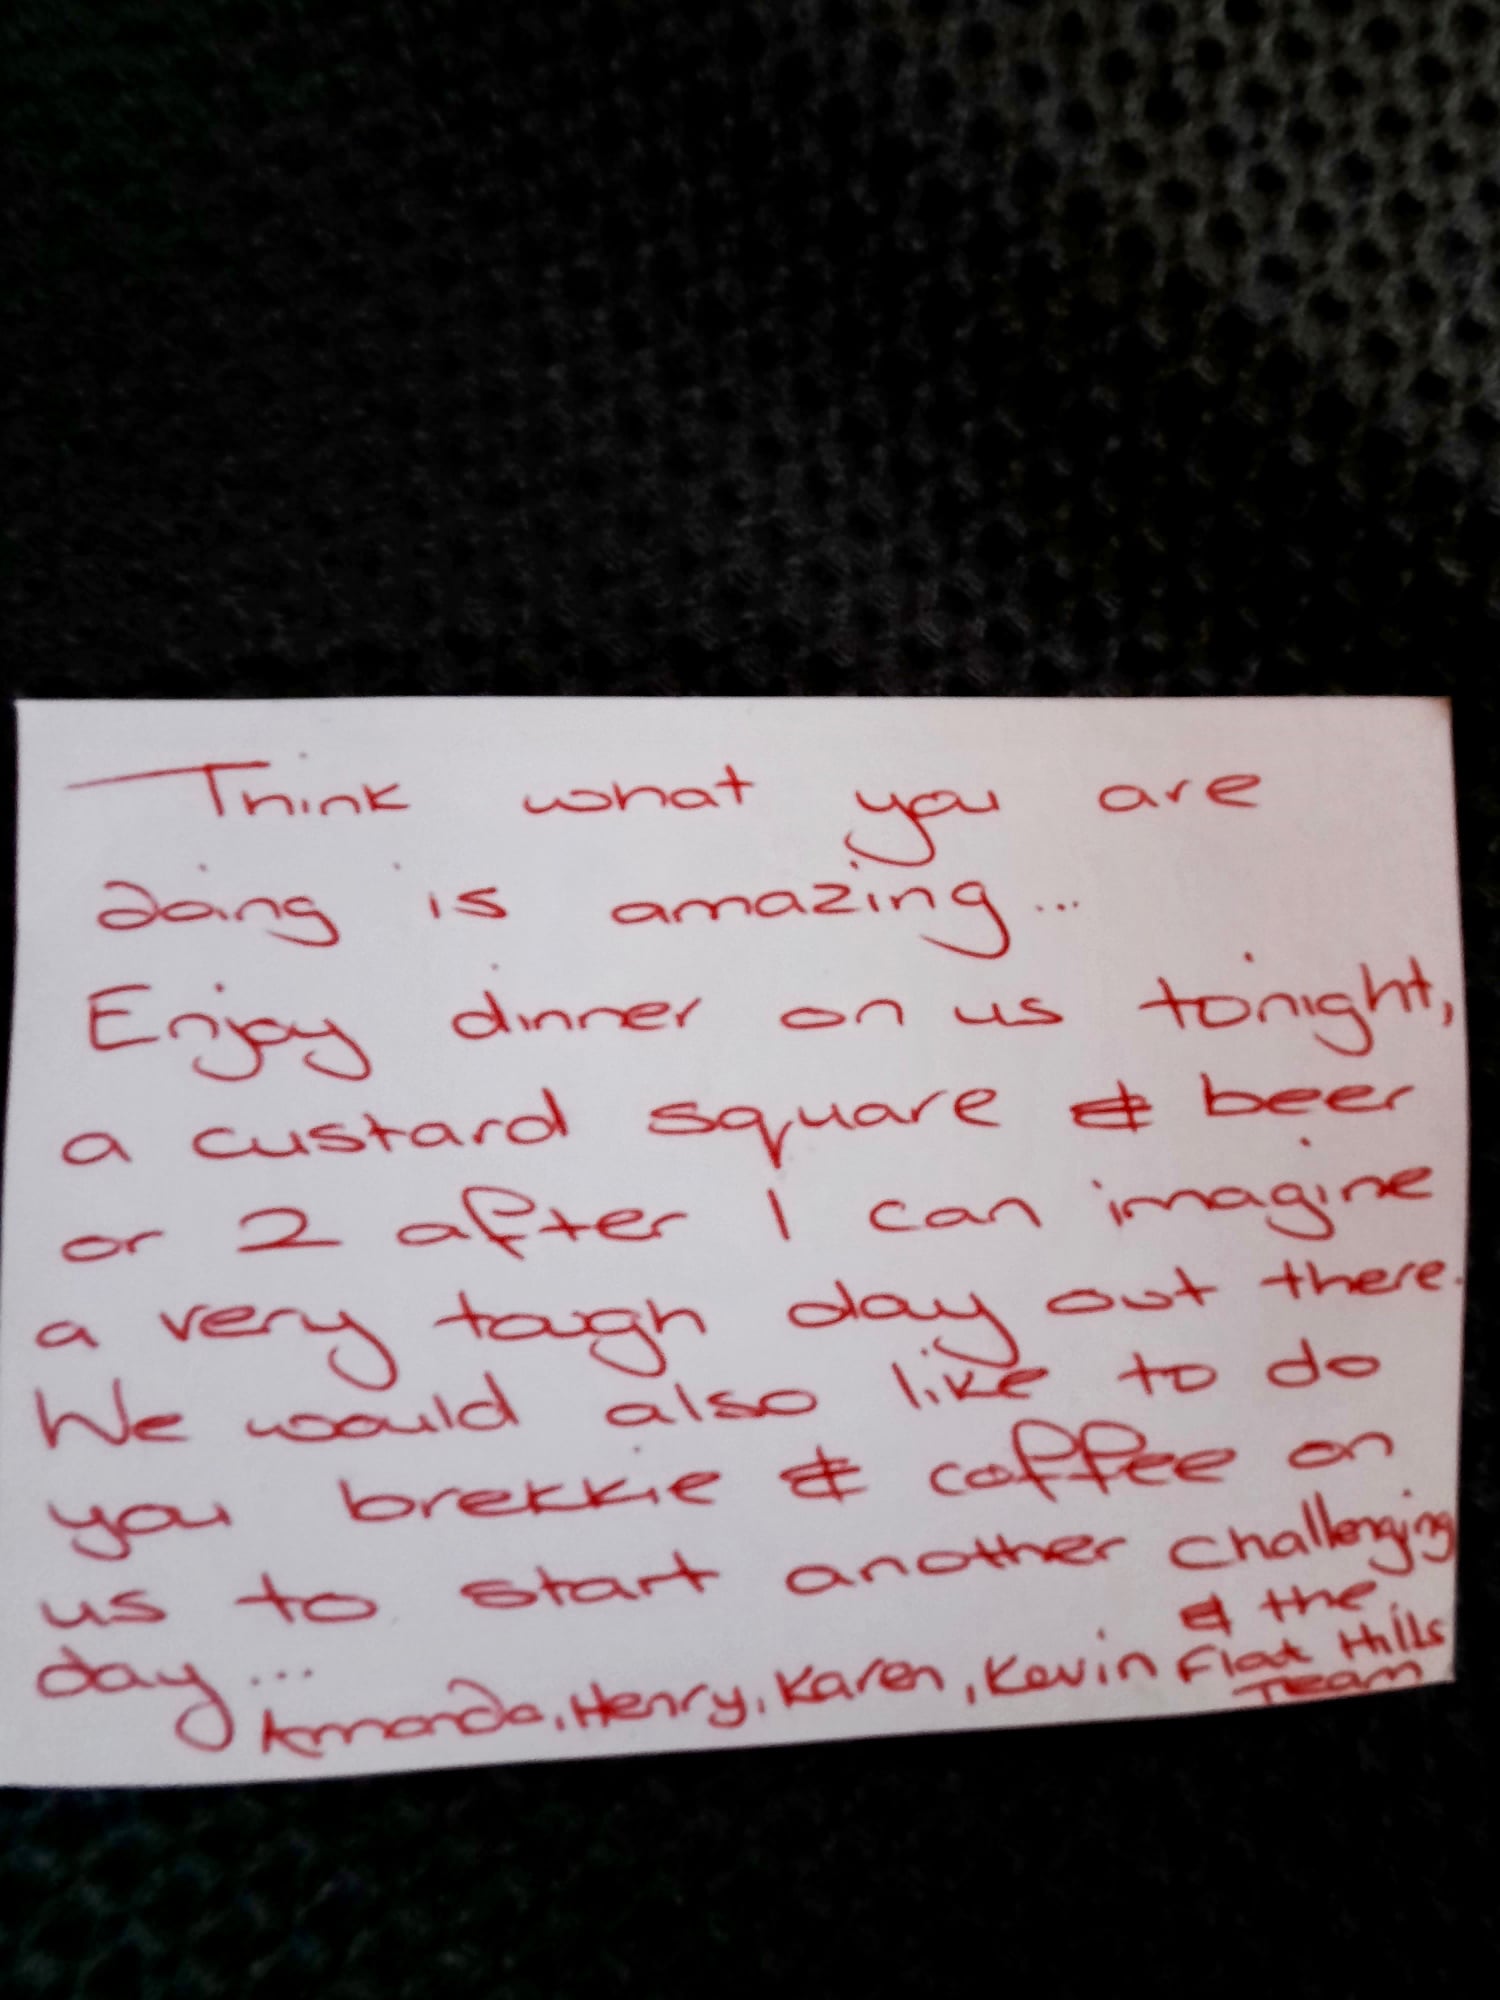 Think what you are
doing is amazing...
Enjoy dinner on us tonight,
a custard square & beer
or 2 after I can imagine
a very tough day out there.
We would also like to do
you brekkie & coffee on
us to start another challenging
day...
Amanda, Henry, Karen, Kevin & the
Flat Hills
Team